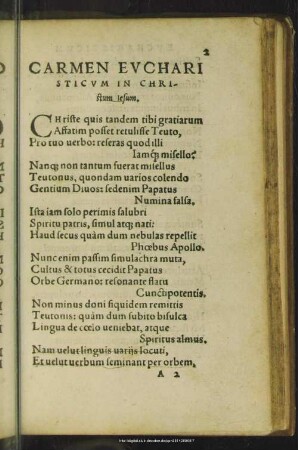 2
CARMEN EVCHARI
STICVM IN CHRI-
stum Iesum.
CHriste quis tandem tibi gratiarum
Affatim posset retulisse Teuto,
Pro tuo uerbo: reseras quod illi
Iamq; misello?
Nanq; non tantum fuerat misellus
Teutonus, quondam uarios colendo
Gentium Diuos: sed enim Papatus
Numina falsa.
Ista iam solo perimis salubri
Spiritu patris, simul atq; nati:
Haud secus quàm dum nebulas repellit
Phœbus Apollo.
Nunc enim passim simulachra muta,
Cultus & totus cecidit Papatus
Orbe Germano: resonante flatu
Cunctipotentis.
Non minus doni siquidem remittis
Teutonis: quàm dum subito bisulca
Lingua de cœlo ueniebat, atque
Spiritus almus.
Nam uelut linguis uarijs locuti,
Et uelut uerbum seminant per orbem,
A 2